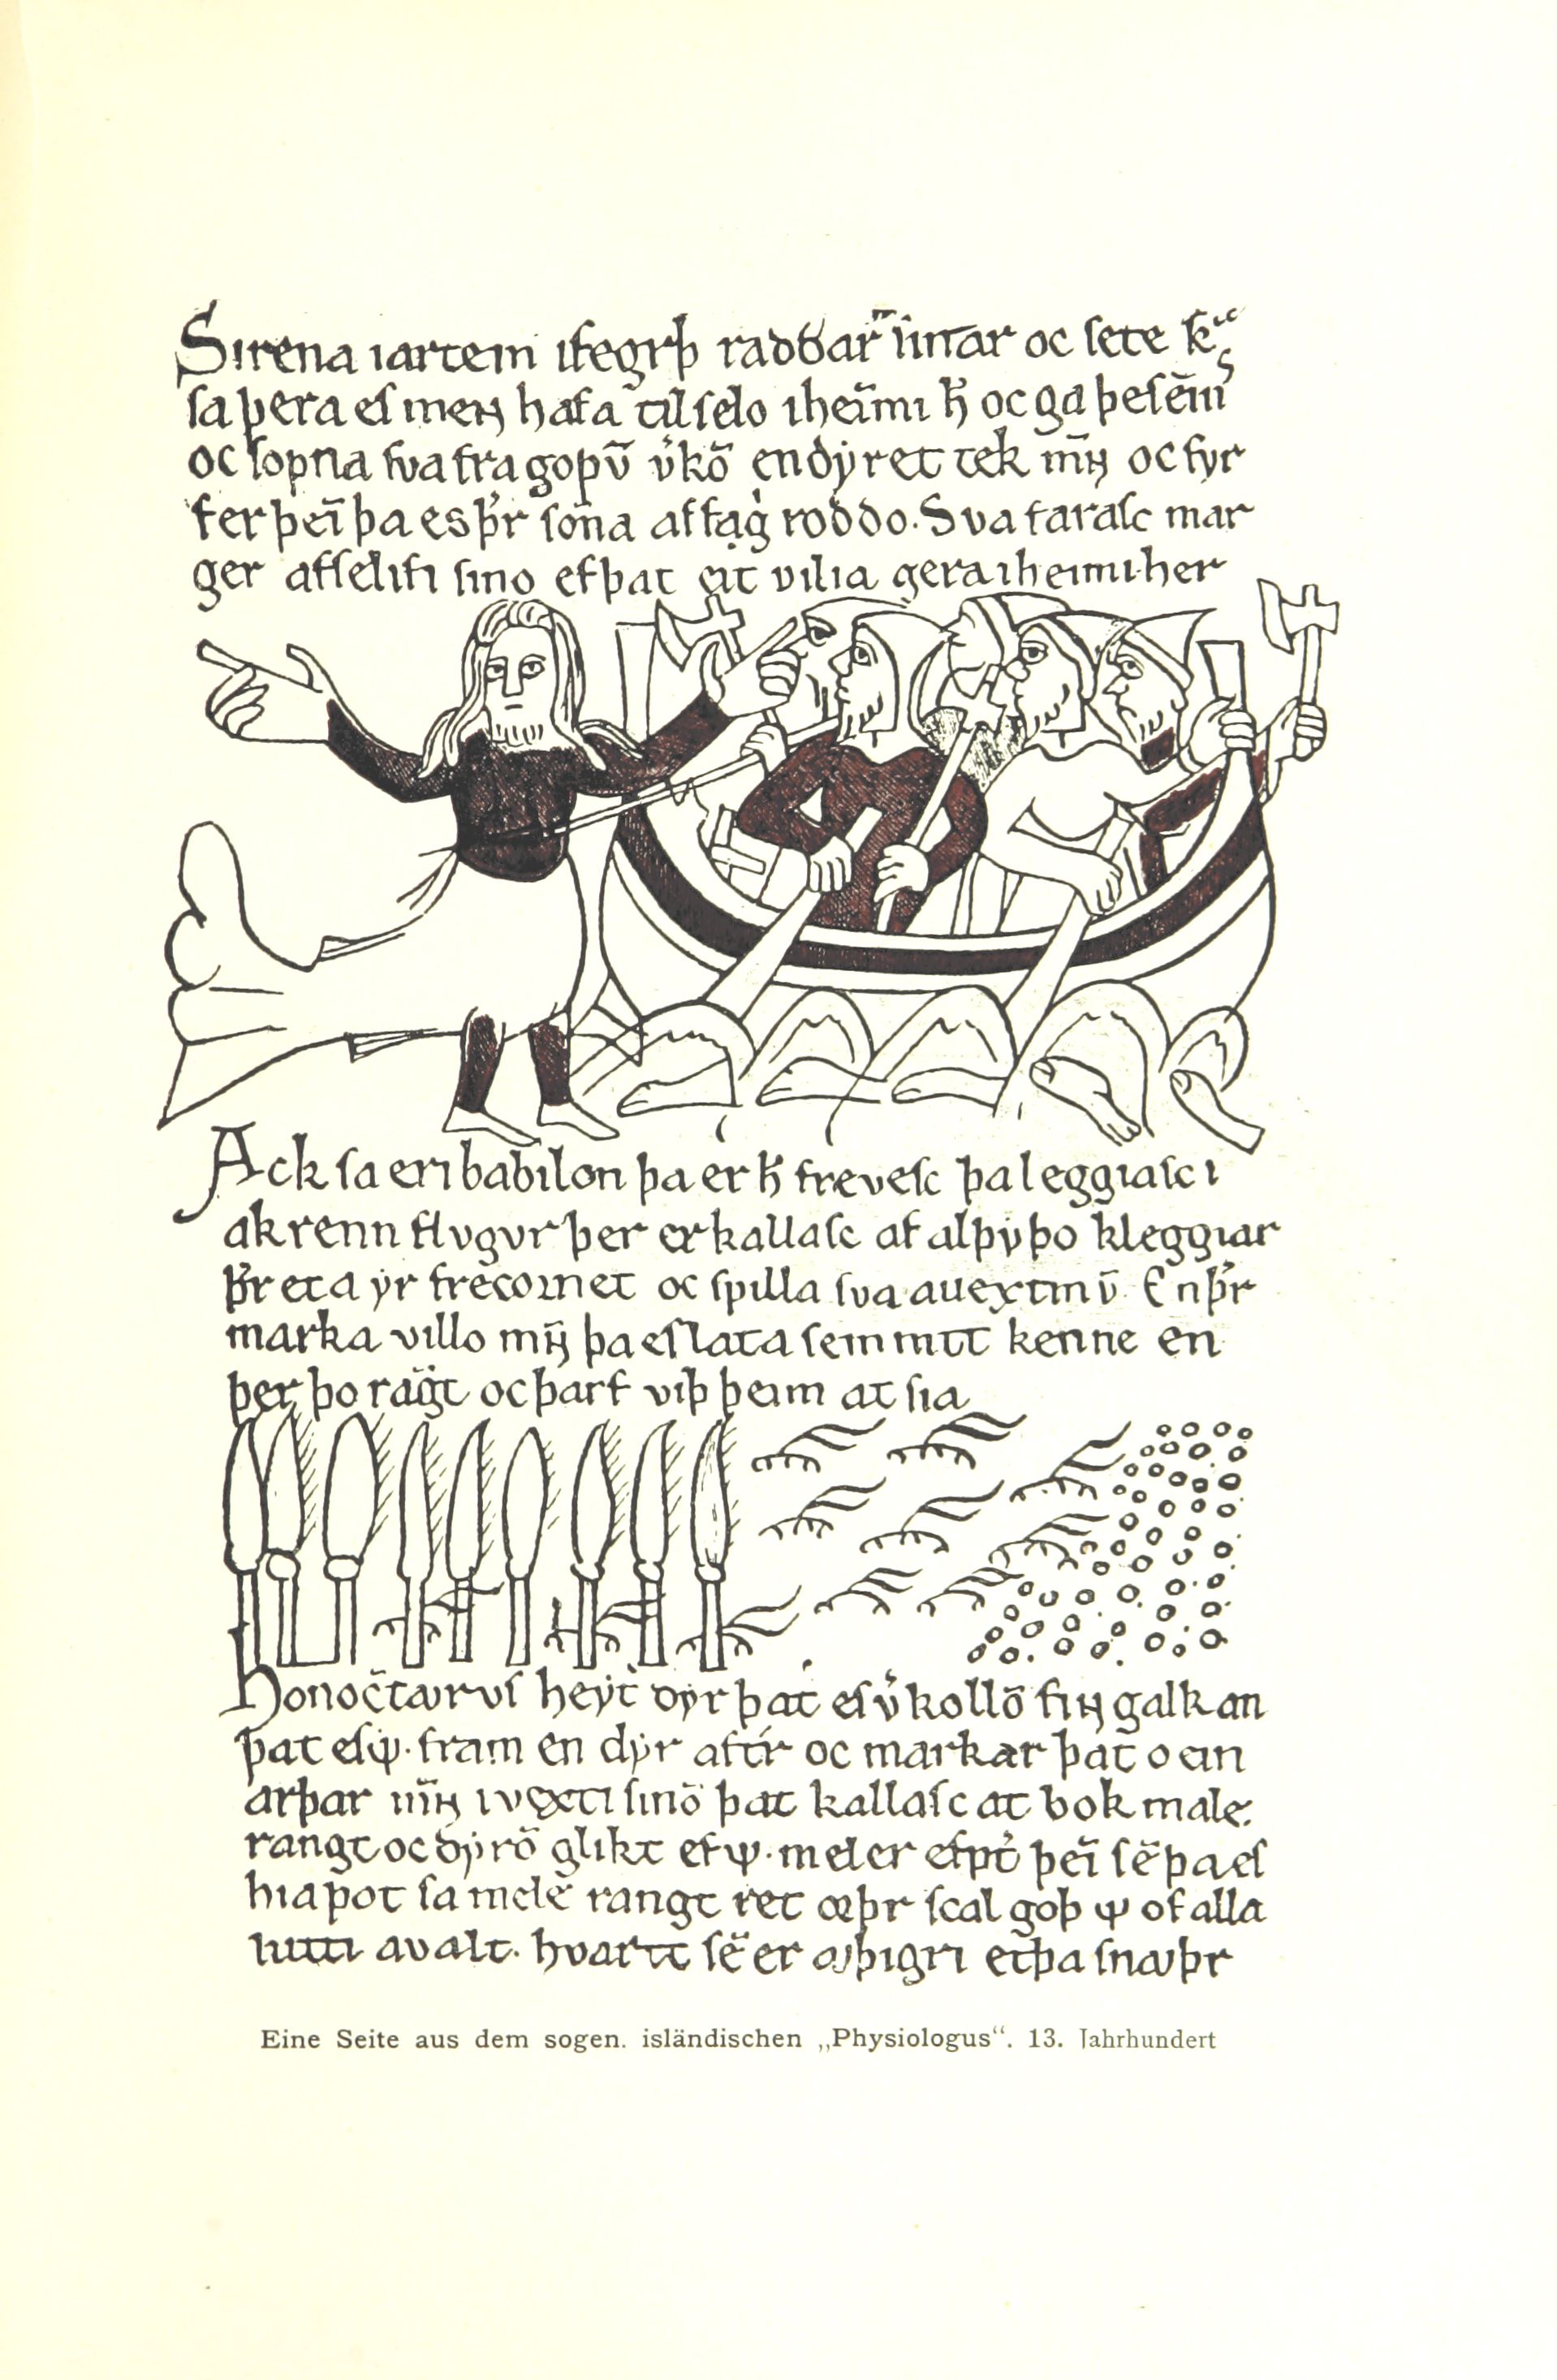 Sırena ıarteın ıfegrþ raddar ıinnar oc ſete
ſa þera eſ men hafa tıl ſelo ıheimı ħ oc ga þeſ
oc ſopna ſva fra goþū v̓kō en dẏret tek oc fyr
fer þeī þa es þ̓r ſoſna af roddo. Sva faraſc mar
ger af ſelıfı ſıno ef þat eıt vılıa gera ıheımı her
Ack ſa er ı babılon þa er ħ freveſc þa leggıaſc ı
akrenn flvgvr þer er kallaſc af alþẏþo kleggıar
þ̓r eta ẏr frecornet oc ſpılla ſva avextınū. En þ̓r
marka vıllo þa eſ lata ſem rıtt kenne en
þer þo oc þarf vıþ þeım at sıa
honocētavrvſ heẏt̓ dẏr þat eſ v̓ kollō fınngalkan
þat eſ ᛘ. fram en dẏr aftr̓ oc markar þat oeın
arþar ıvextı ſınō þat kallaſc at bok male.
rangt oc dẏrō glıkt ef ᛘ. meler þeī ſē þa eſ
hıa ſa mele rangt ret œþr ſcal goþ ᛘ of alla
lutı avalt. hvartt ſē er eſ þa ſnavþr
Eine Seite aus dem sogen. isländischen „Physiologus“. 13. Jahrhundert